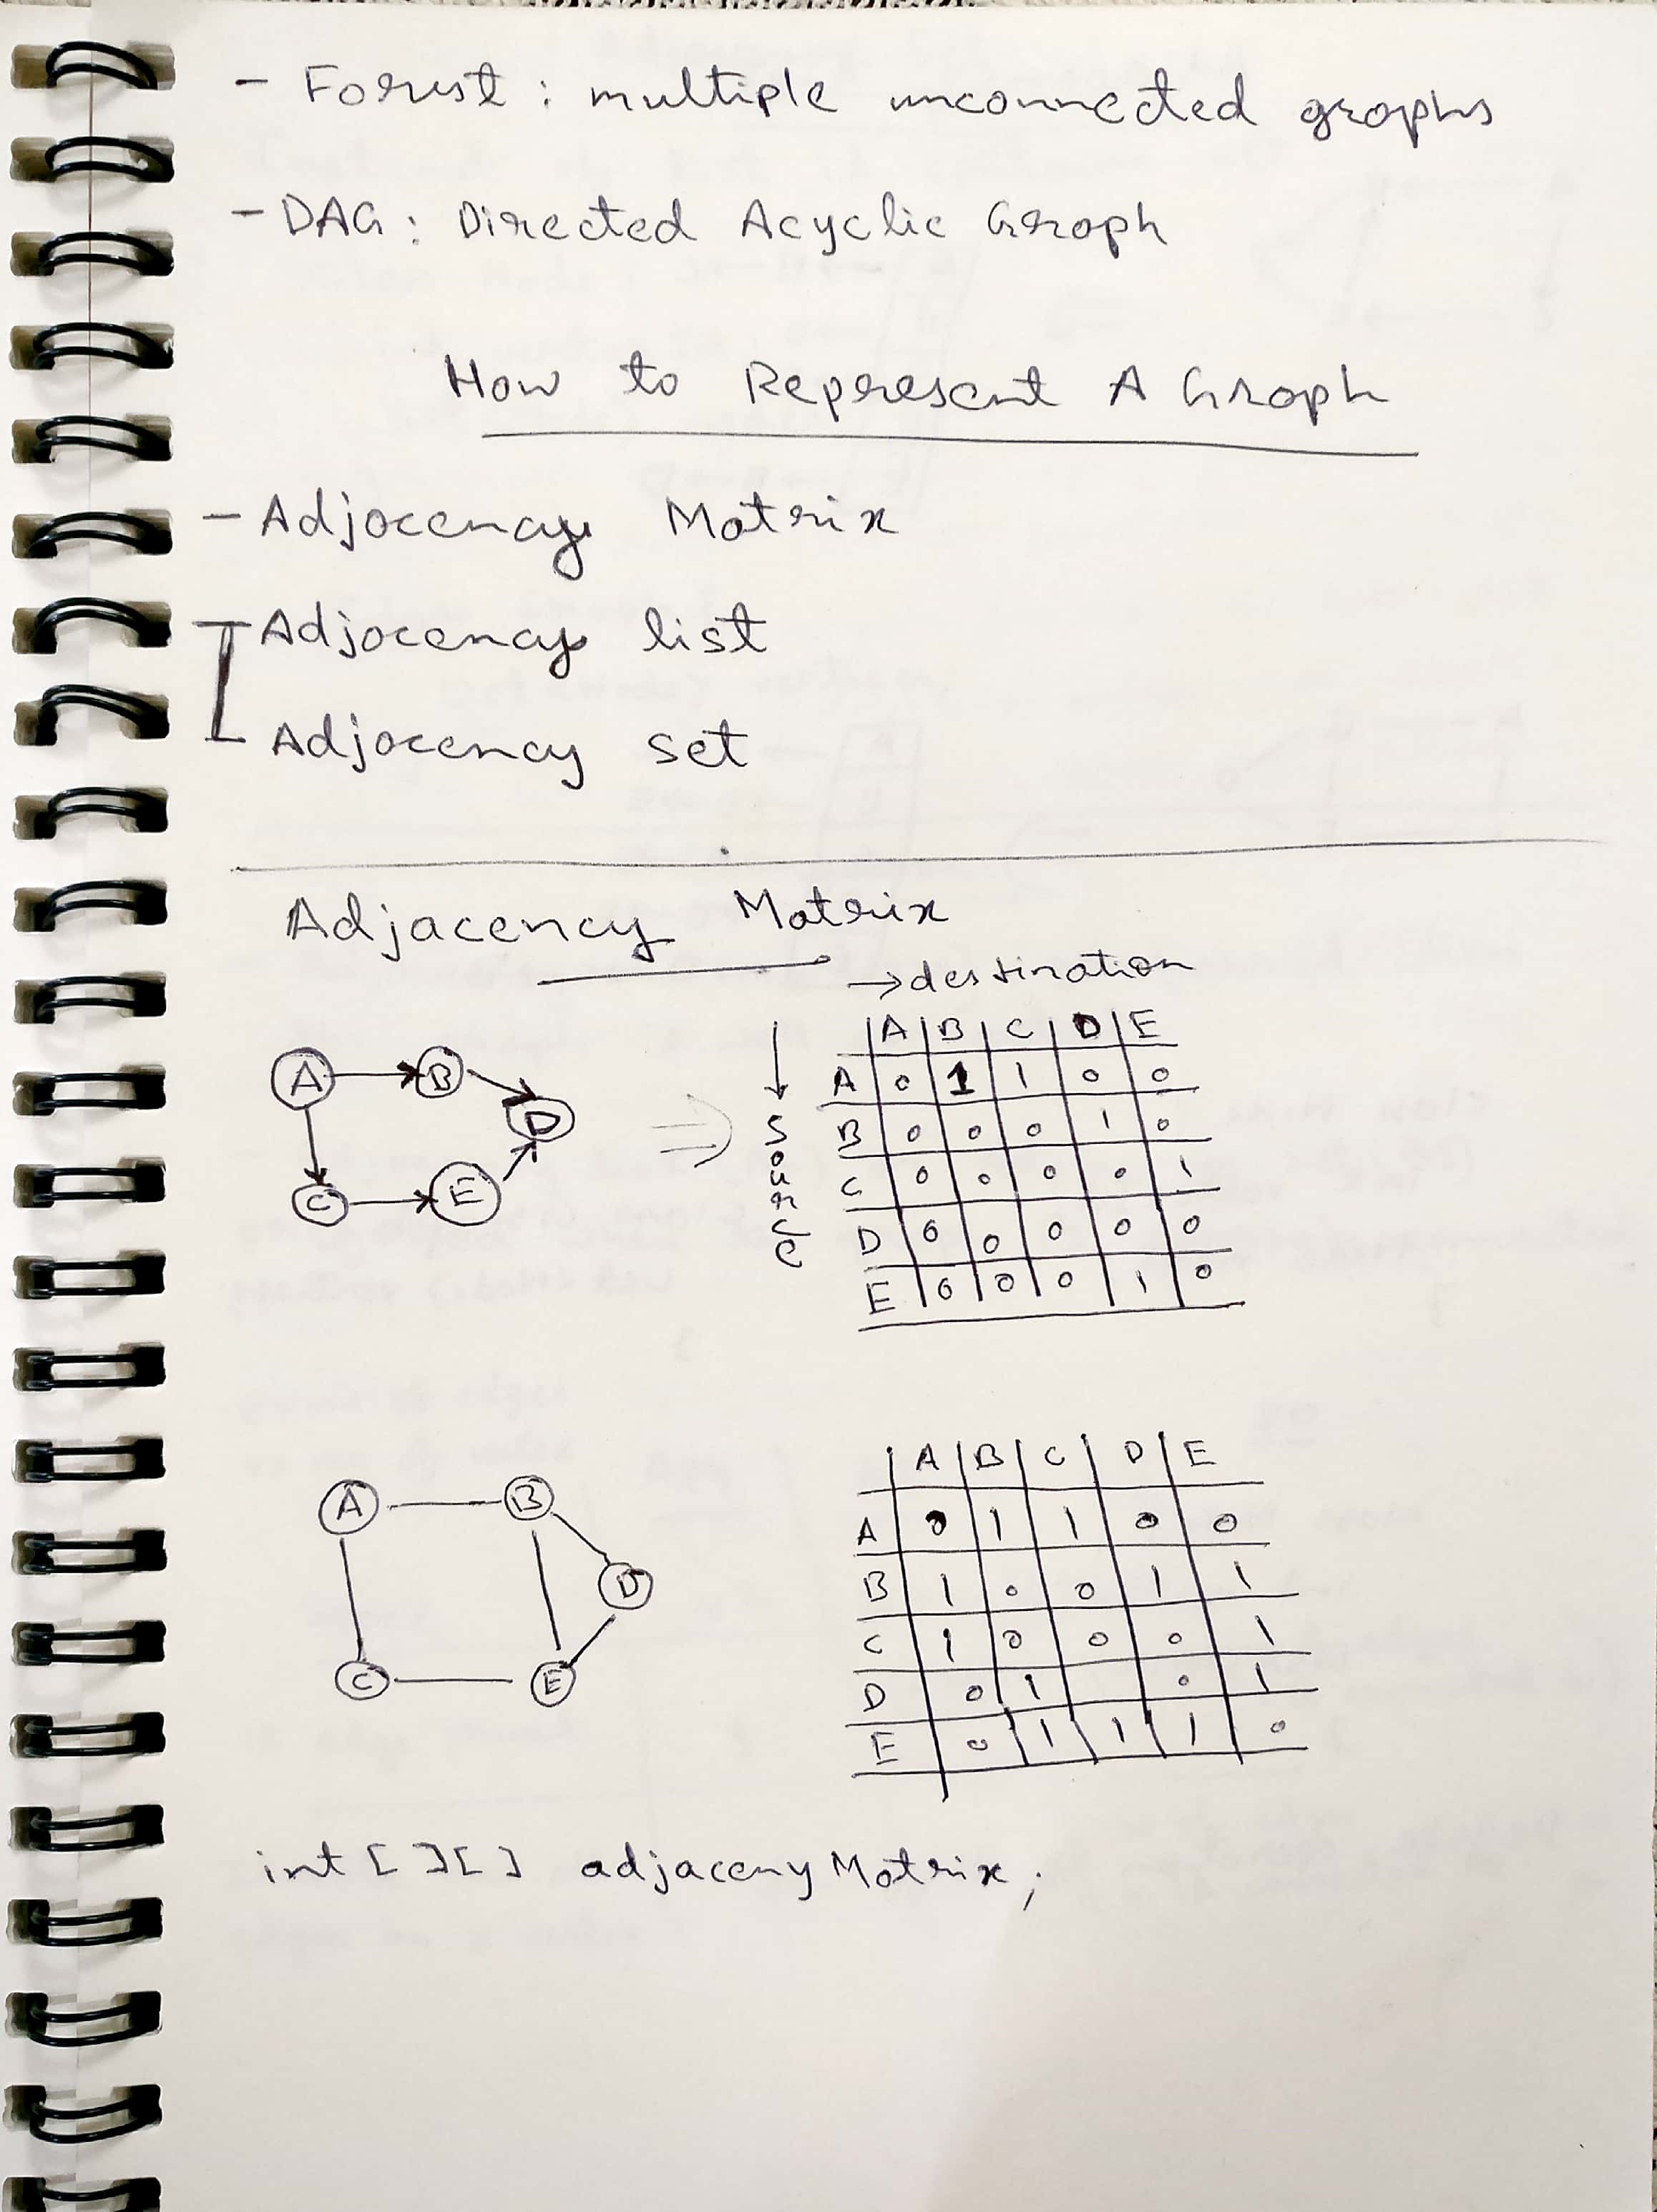 - Forest : multiple unconnected graphs
- DAG : Directed Acyclic Graph
How to Represent A Graph
- Adjacency Matrix
- Adjacency list
- Adjacency set
Adjacency Matrix
→ destination
↓ source
A B C D E
A 0 1 1 0 0
B 0 0 0 1 0
C 0 0 0 0 1
D 0 0 0 0 0
E 0 0 0 1 0
A B
D
C E
A B C D E
A 0 1 1 0 0
B 1 0 0 1 1
C 1 0 0 0 1
D 0 1 0 1
E 0 1 1 1 0
A B
D
C E
int [ ][ ] adjacenyMatrix;